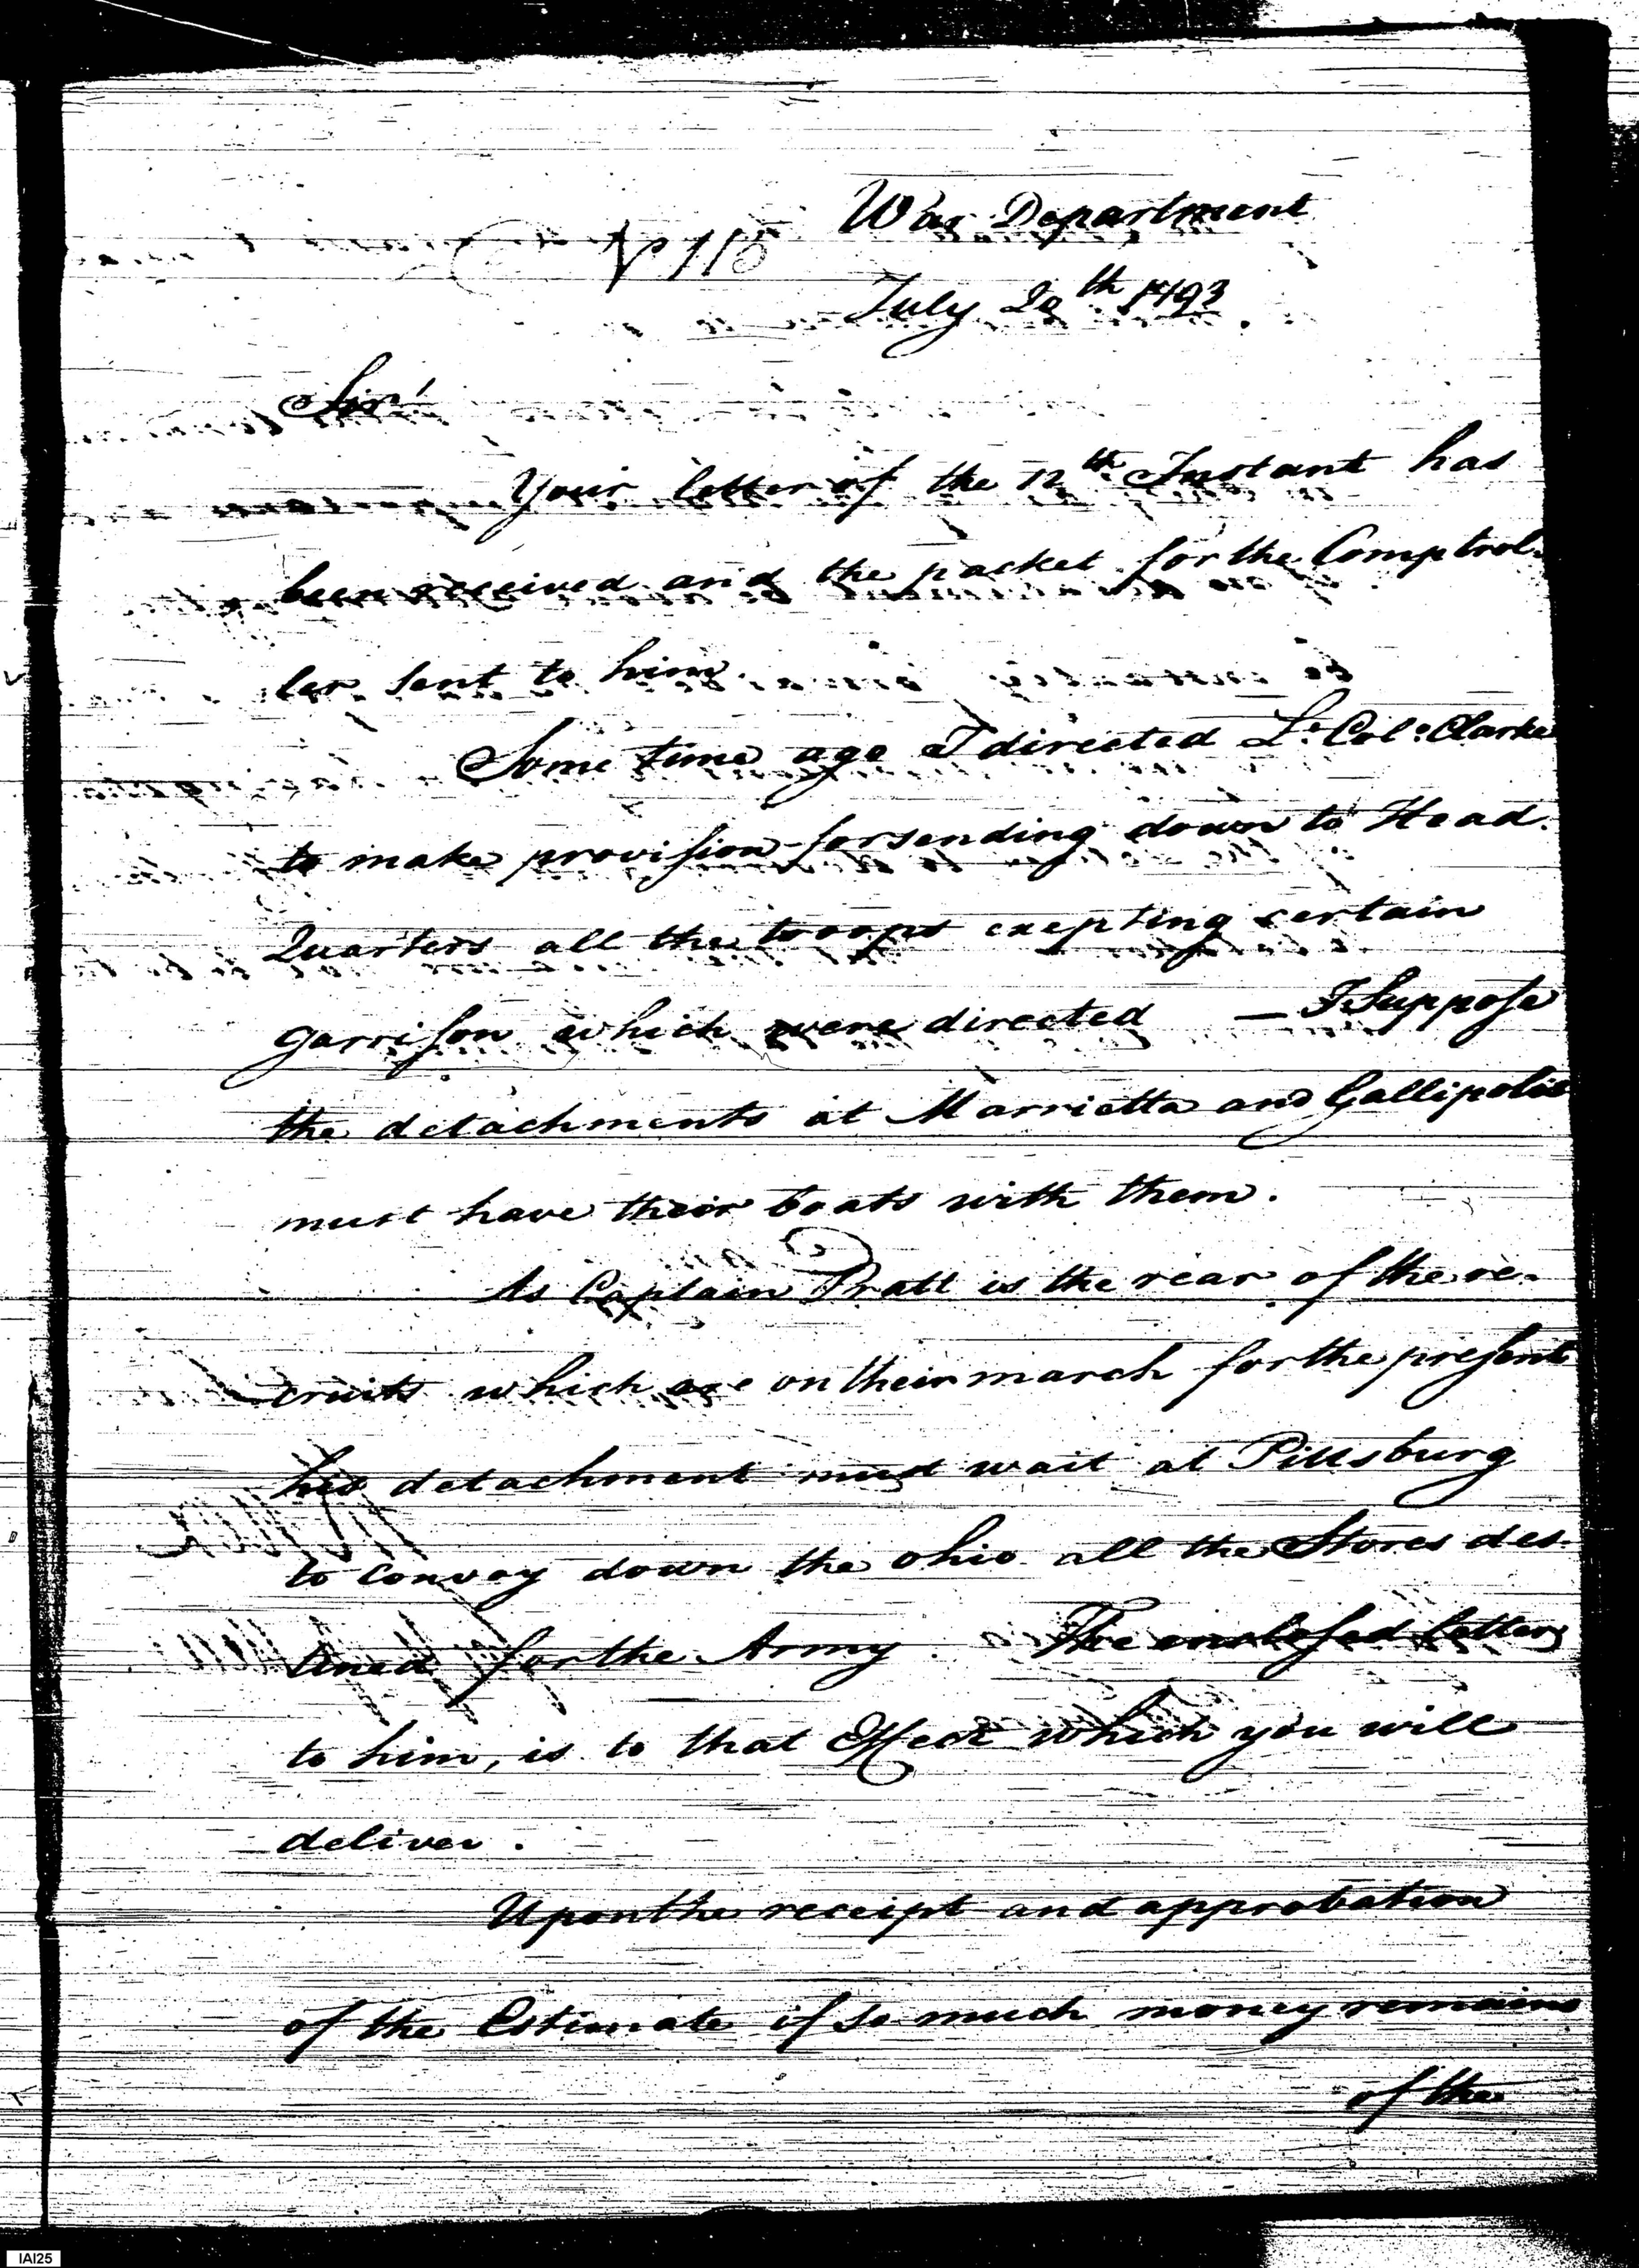 War Department
No 118
July 20th 1793
Sir!
Your letter of the 12th Instant has
been received and the packet for the Comptrol-
ler sent to him.
Some time ago I directed Lt. Colo. Clarke
to make provision for sending down to Head
Quarters all the troops exepting certain
garrison which were directed — I Suppose
the detachments at Marrietta and Gallipolis
must have their boats with them.
As Captain Pratt is the rear of the re-
cruits which are on their march for the present
his detachment must wait at Pittsburg
to convoy down the Ohio all the Stores des-
tined for the Army. The enclosed letter
to him, is to that effect which you will
deliver.
Upon the receipt and approbation
of the Estimate if so much money remains
of the
IAI25